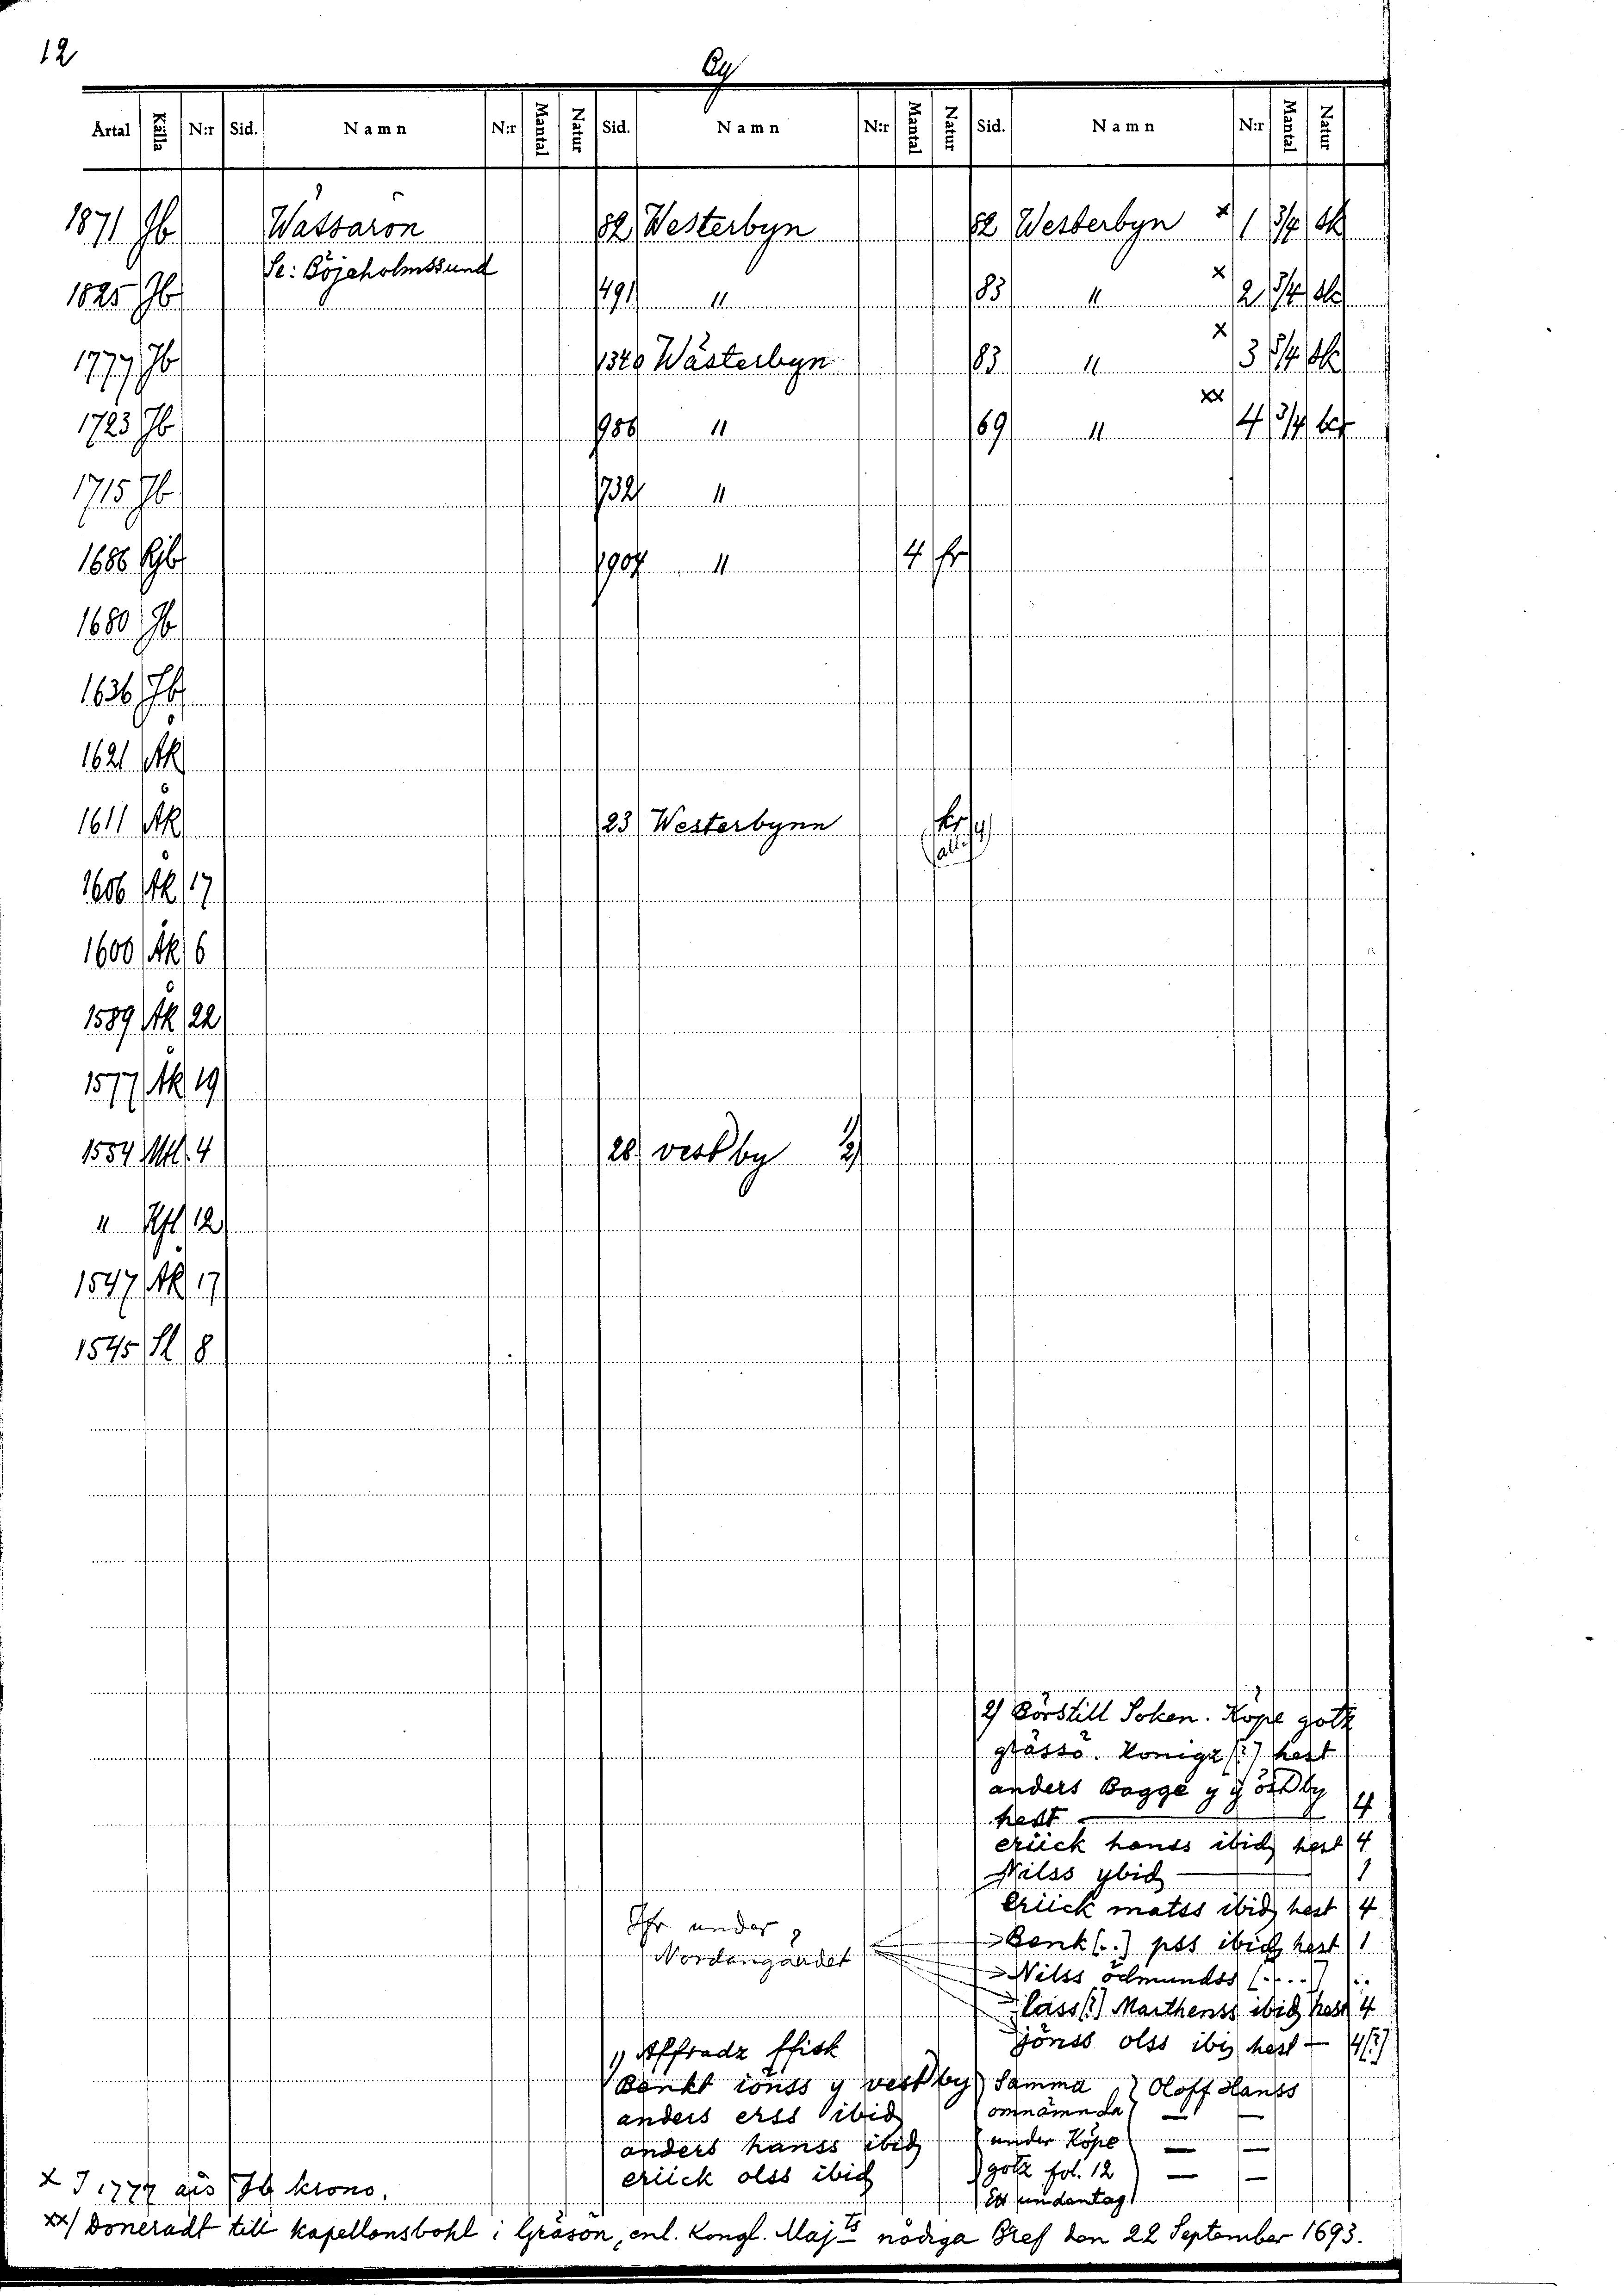 12
By
Årtal Källa N:r Sid. Namn N:r Mantal Natur Sid. Namn N:r Mantal Natur Sid. Namn N:r Mantal Natur
1871 Jb Wässarön 82 Westerbyn 82 Westerbyn x 1 3/4 sk
Se: Böjeholmssund
1825 Jb 491 " 83 " x 2 3/4 sk
1777 Jb 1340 Wästerbyn 83 " x 3 3/4 sk
1723 Jb 986 " 69 " xx 4 3/4
1715 Jb 732 "
1686 Rjb 1904 " 4 fr
1680 Jb
1636 Jb
1621 Åk
1611 Åk 23 Westerbynn kr
1606 Åk 17
1600 Åk 6
1589 Åk 22
1577 Åk 19
1554 Mtl. 4 28 vestby 1) 2)
" 12
1547 Åk 17
1545 Sl 8
2) Börstill Soken. Köpe gotz
grässö. Konigz [?] hest
anders Bagge y östby
hest — 4
eriick hanss ibid hest 4
Nilss ybid — 1
Eriick matss ibid hest 4
Jfr under
Benk[..] pss ibid hest 1
Nordangärdet
Nilss ödmundss [.....] ..
lass[?] Marthenss ibid hest 4
jönss olss ibid hest — 4[?]
1) Affradz ffisk
Benkt iönss y vestby Samma } Oloff Hanss
anders erss ibid omnämnda — —
anders hanss ibid under Köpe — —
eriick olss ibid gotz fol. 12 — —
x I 1777 års Jb krono. undantag
xx) Doneradt till kapellansbohl i Gräsön, enl. Kongl. Maj:ts nådiga Bref den 22 September 1693.